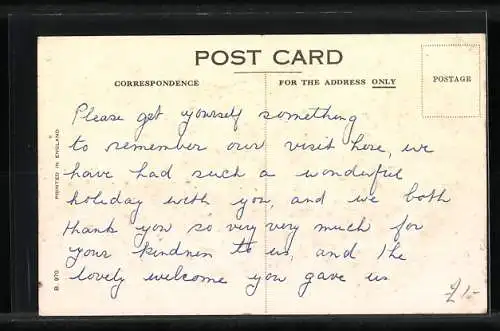 POST CARD
CORRESPONDENCE
FOR THE ADDRESS ONLY
POSTAGE
PRINTED IN ENGLAND
B. 970
Please get yourself something
to remember our visit here, we
have had such a wonderful
holiday with you, and we both
thank you so very very much for
your kindness to us, and the
lovely welcome you gave us
£1-